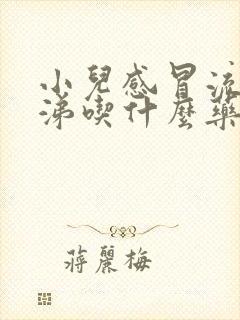 小兒感冒流
涕喫什麼藥
蔣麗梅